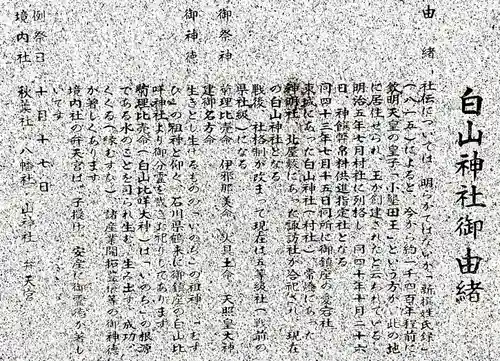 白山神社御由緒
由緒 社伝については、明らかではないが、新撰姓氏録
(八一五)によると、今から約一千四百年程前に
敏明天皇の皇子「小墾田王」という方が、此の地
に居住せられ、王が創建されたと云われている。
明治五年七月村社に列格し、同四十年十月二十六
日、神饌幣帛料供進指定社となる。
同四十三年七月十五日同所に御鎮座の愛宕社、
東城にあった白山神社(村社)、常海にあった
神明社、北屋敷にあった諏訪社を合祀され、現在
の白山神社となる。
戦後、社格制が改まって現在は五等級社(戦前の
県社級)になる。
御祭神 菊理比売命 伊邪那美命 火具土命 天照皇大神
建御名方命
御神徳 生きとし生けるものの「いのち」の祖神「むす
ひ」の祖神と仰ぐ、石川県鶴来に御鎮座の白山比
咩神社より御分霊を戴きお祀りしてあります。
菊理比売命(白山比咩大神)は「いのち」の根源
である水のことを司られ生む、生み出す、成功、
くくる(縁むすび)諸産業開拓生成等の御神徳
が著しくあります。
境内社の弁天宮は、子授け、安産に御霊徳が著し
いです。
例祭日 十月十七日
境内社 秋葉社 八幡社 山神社 弁天宮